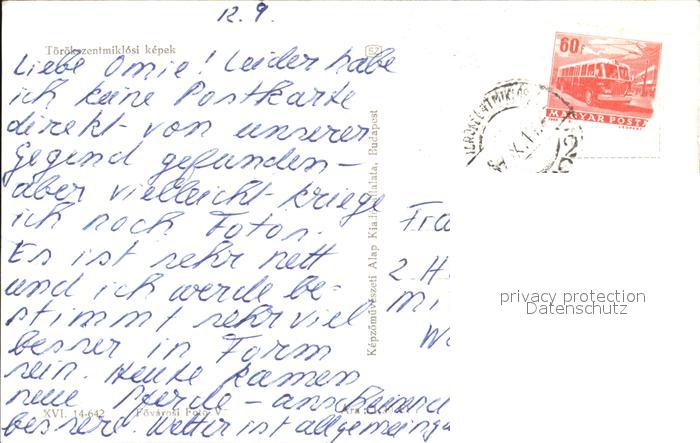 12.9.
Törökszentmiklósi képek
Liebe Omie! Leider habe
ich keine Postkarte
direkt von unserer
Gegend gefunden –
aber vielleicht kriege
ich noch Fotos.
Es ist sehr nett
und ich werde be-
stimmt sehr viel
besser in Form
sein. Heute kamen
neue Pferde – anscheinend
bessere. Wetter ist allgemein
XVI. 14-642 Fővárosi Fotó V.
Képzőművészeti Alap Kiadóvállalata, Budapest
60f
MAGYAR POSTA
TÖRÖKSZENTMIKLÓS
Fra
2. H
Mi
W
privacy protection
Datenschutz